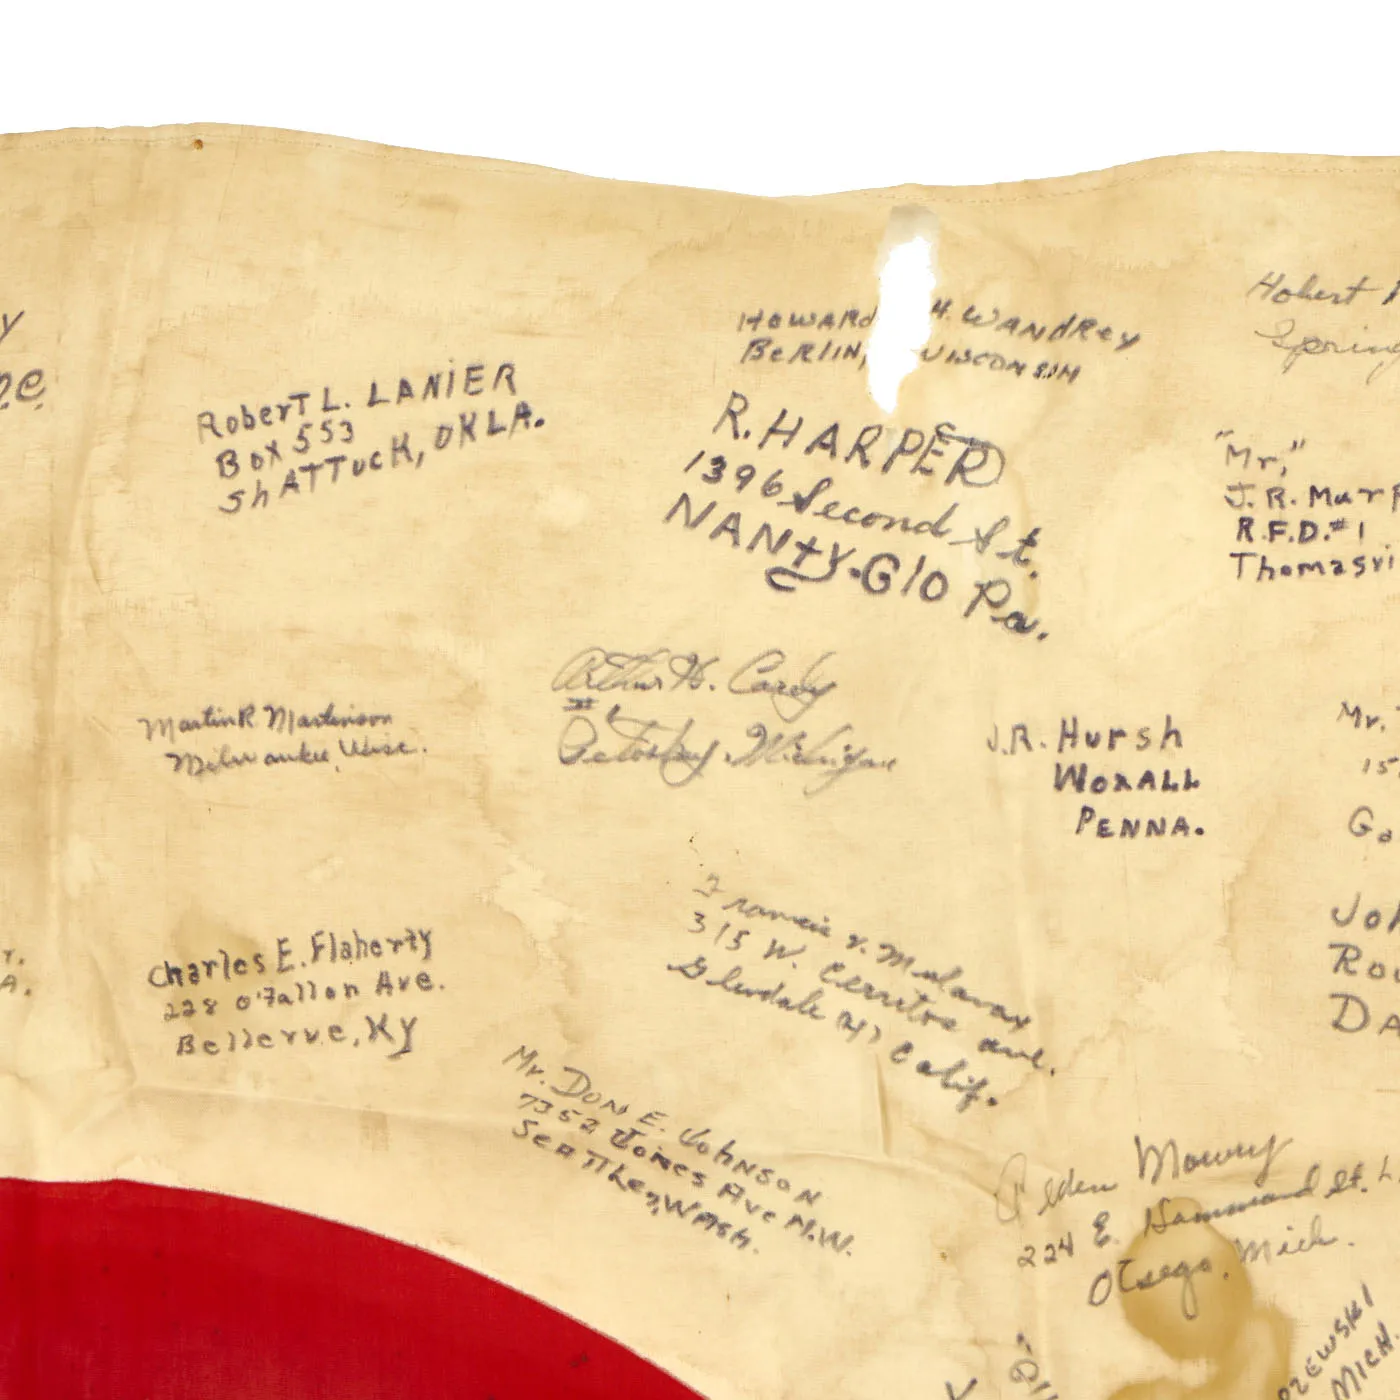 Robert L. LANIER
Box 553
ShATTucK, OKLA.
HOWARd H. WANdREy
BeRLIN, WISCONSIN
R. HARPER
1396 Second St.
NANty-Glo Pa.
Hobert
Spring
"Mr,"
J.R. Murp
R.F.D. #1
Thomasvi
Martin R Martinson
Milwaukee, Wisc.
Arthur H. Cardy
Petoskey, Michigan
J.R. Hursh
WOXALL
PENNA.
Mr.
15
Go
Charles E. Flaherty
228 O'Fallon Ave.
Bellevue, Ky
315 W. Cerritos ave.
Glendale Calif.
Joh
Rou
DA
Mr. DON E. JOHNSON
7352 Jones Ave N.W.
SeATTLe, WASh.
Alden Mowry
224 E. Hammond St.
Otsego, Mich.
ZEWSKI
MICH.